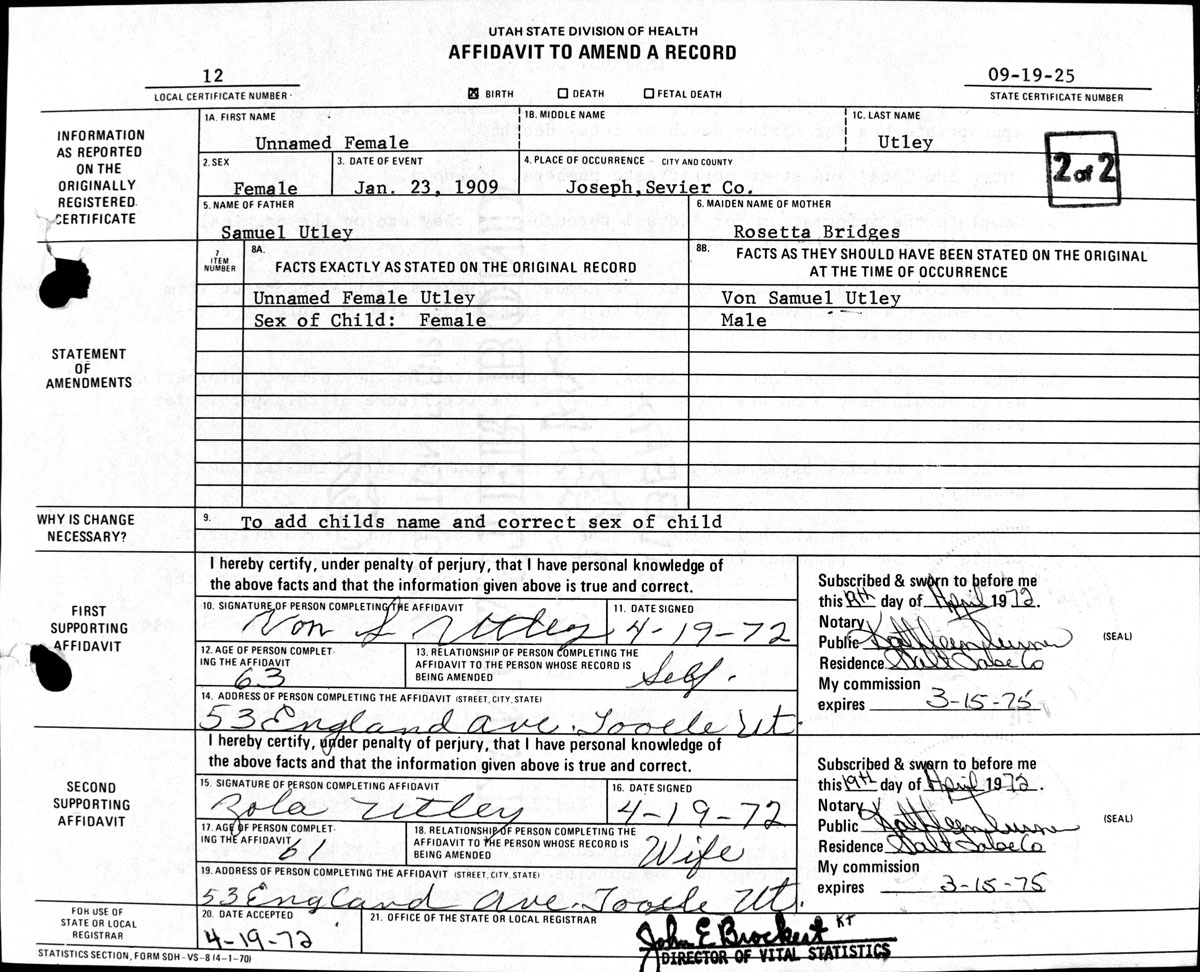 UTAH STATE DIVISION OF HEALTH
AFFIDAVIT TO AMEND A RECORD
12
LOCAL CERTIFICATE NUMBER
☒ BIRTH ☐ DEATH ☐ FETAL DEATH
09-19-25
STATE CERTIFICATE NUMBER
INFORMATION
AS REPORTED
ON THE
ORIGINALLY
REGISTERED
CERTIFICATE
1A. FIRST NAME 1B. MIDDLE NAME 1C. LAST NAME
Unnamed Female Utley
2 of 2
2. SEX 3. DATE OF EVENT 4. PLACE OF OCCURRENCE - CITY AND COUNTY
Female Jan. 23, 1909 Joseph, Sevier Co.
5. NAME OF FATHER 6. MAIDEN NAME OF MOTHER
Samuel Utley Rosetta Bridges
STATEMENT
OF
AMENDMENTS
7
ITEM
NUMBER
8A.
FACTS EXACTLY AS STATED ON THE ORIGINAL RECORD
8B. FACTS AS THEY SHOULD HAVE BEEN STATED ON THE ORIGINAL
AT THE TIME OF OCCURRENCE
Unnamed Female Utley Von Samuel Utley
Sex of Child: Female Male
WHY IS CHANGE
NECESSARY?
9. To add childs name and correct sex of child
FIRST
SUPPORTING
AFFIDAVIT
I hereby certify, under penalty of perjury, that I have personal knowledge of
the above facts and that the information given above is true and correct.
10. SIGNATURE OF PERSON COMPLETING THE AFFIDAVIT 11. DATE SIGNED
Von S Utley 4-19-72
12. AGE OF PERSON COMPLET-
ING THE AFFIDAVIT
63
13. RELATIONSHIP OF PERSON COMPLETING THE
AFFIDAVIT TO THE PERSON WHOSE RECORD IS
BEING AMENDED
Self.
14. ADDRESS OF PERSON COMPLETING THE AFFIDAVIT (STREET, CITY, STATE)
53 England Ave. Tooele Ut
Subscribed & sworn to before me
this 19th day of April 1972.
Notary
Public Kathleen
Residence Salt Lake Co
(SEAL)
My commission
expires 3-15-75
SECOND
SUPPORTING
AFFIDAVIT
I hereby certify, under penalty of perjury, that I have personal knowledge of
the above facts and that the information given above is true and correct.
15. SIGNATURE OF PERSON COMPLETING AFFIDAVIT 16. DATE SIGNED
Zola Utley 4-19-72
17. AGE OF PERSON COMPLET-
ING THE AFFIDAVIT
61
18. RELATIONSHIP OF PERSON COMPLETING THE
AFFIDAVIT TO THE PERSON WHOSE RECORD IS
BEING AMENDED
Wife
19. ADDRESS OF PERSON COMPLETING THE AFFIDAVIT (STREET, CITY, STATE)
53 England Ave. Tooele Ut.
Subscribed & sworn to before me
this 19th day of April 1972.
Notary
Public Kathleen
Residence Salt Lake Co
(SEAL)
My commission
expires 3-15-75
FOR USE OF
STATE OR LOCAL
REGISTRAR
20. DATE ACCEPTED
4-19-72
21. OFFICE OF THE STATE OR LOCAL REGISTRAR
John E Brockert KT
DIRECTOR OF VITAL STATISTICS
STATISTICS SECTION, FORM SDH-VS-8 (4-1-70)